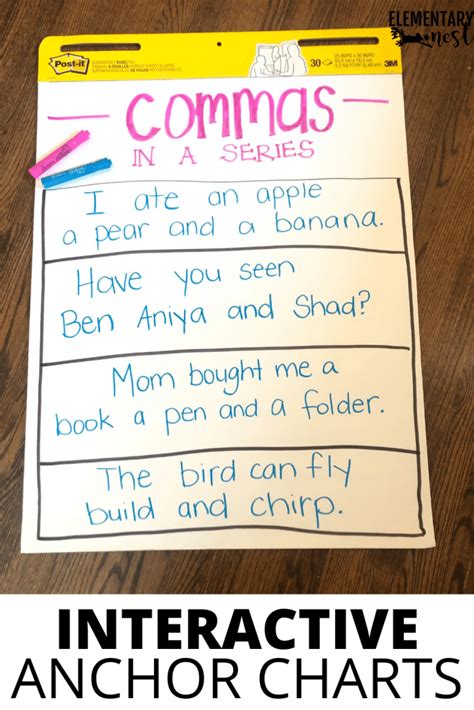 ELEMENTARY
nest
Post-it
30
3M
COMMAS
IN A SERIES
I ate an apple
a pear and a banana.
Have you seen
Ben Aniya and Shad?
Mom bought me a
book a pen and a folder.
The bird can fly
build and chirp.
INTERACTIVE
ANCHOR CHARTS